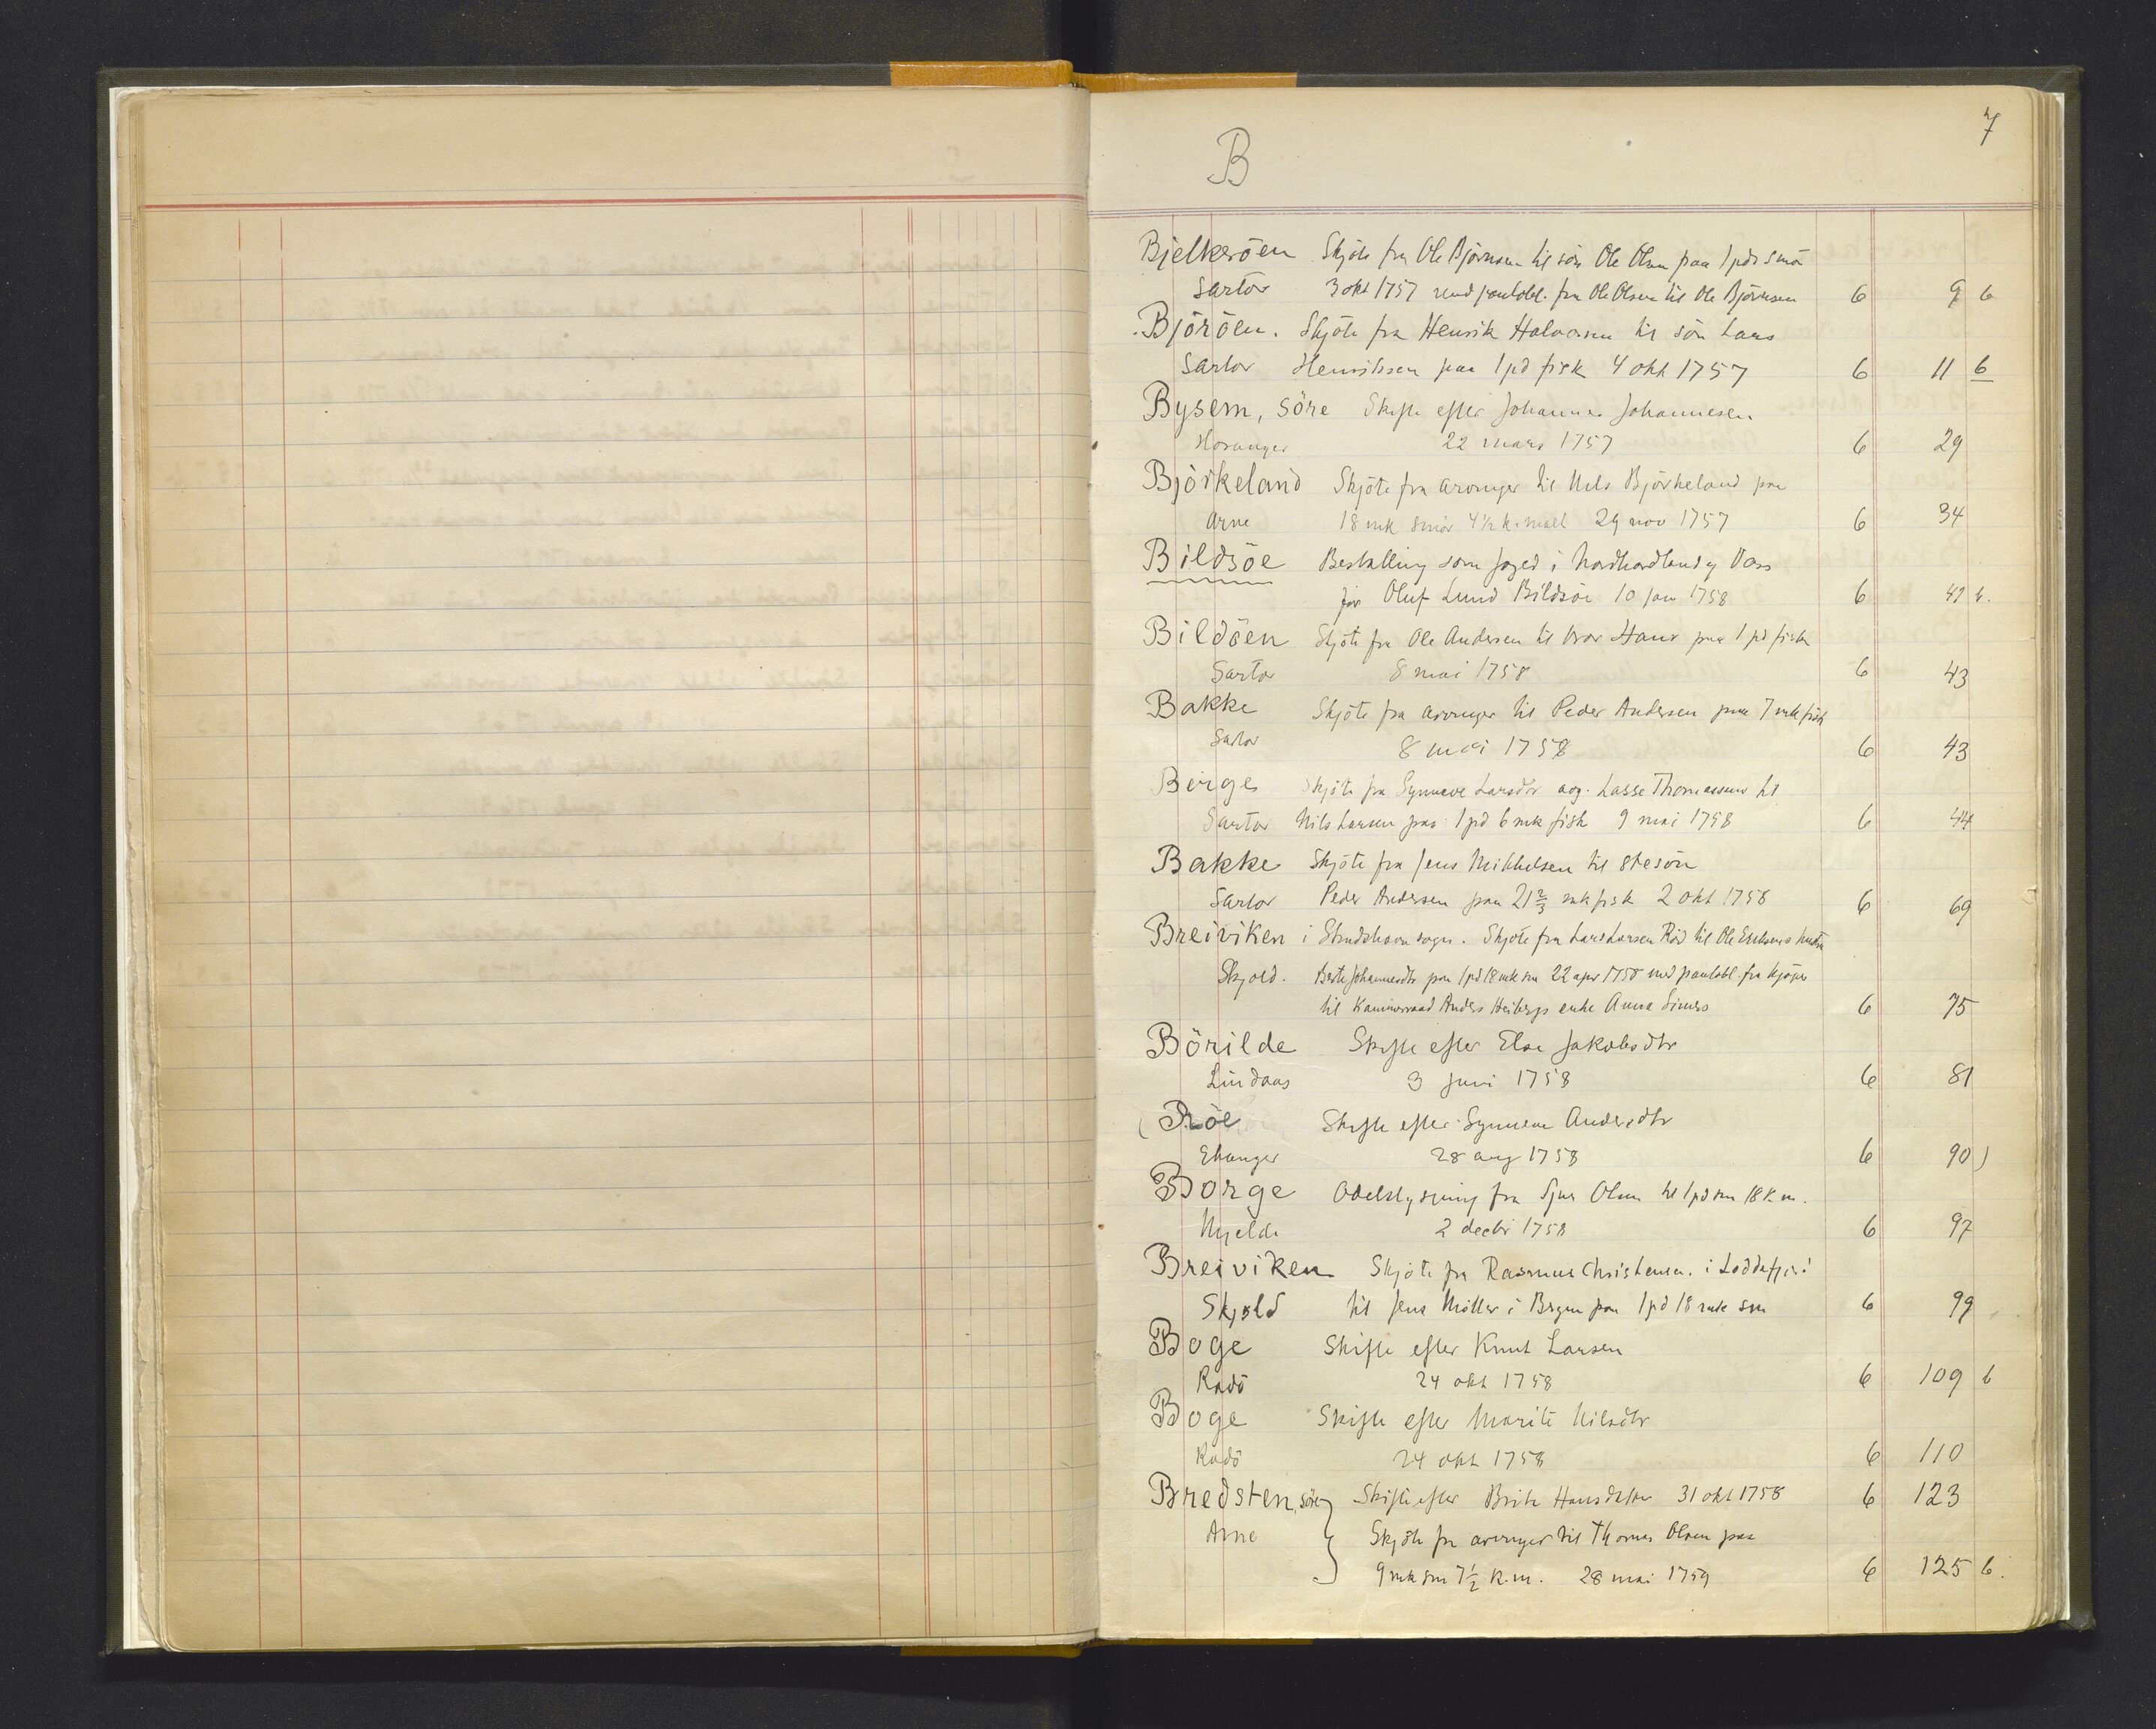 7
B
Bjelkeröen Skjöte fra Ole Björnsen til sön Ole Olsen paa 1 pds smör
Sartor 3 okt 1757 med pantobl. fra Ole Olsen til Ole Björnsen 6 9 b
Björöen. Skjöte fra Henrik Halvorsen til sön Lars
Sartor Henriksen paa 1 pd fisk 4 okt 1757 6 11 b
Bysem, söre Skifte efter Johannes Johannesen
Hosanger 22 mars 1757 6 29
Björkeland Skjöte fra arvinger til Nils Björkeland paa
Arne 18 mk smör 4½ k. mael 29 nov 1757 6 34
Bildsöe Bestalling som foged i Nordhordland og Voss
for Oluf Lund Bildsöe 10 jan 1758 6 b.
Bildöen Skjöte fra Ole Andersen til bror Hans paa 1 pd fisk
Sartor 8 mai 1758 6 43
Bakke Skjöte fra arvinger til Peder Andersen paa 7 mk fisk
Sartor 8 mai 1758 6 43
Berge Skjöte fra Synneve Larsdtr og Lasse Thomassen til
Sartor Nils Larsen paa 1 pd 6 mk fisk 9 mai 1758 6 44
Bakke Skjöte fra Jens Mikkelsen til stesön
Sartor Peder Andersen paa 21 2/3 mk fisk 2 okt 1758 6 69
Breiviken i Strudshavn sogn. Skjöte fra Lars Larsen Röd til Ole
Skjold. Berte Johannesdtr paa 1 pd 18 mk sm 22 apr 1758 med pantobl. fra kjöper
til Kammerraad Anders Heibergs enke Anna Simers 6 75
Börilde Skifte efter Else Jakobsdtr
Lindaas 3 juni 1758 6 81
( Röe Skifte efter Synneve Andersdtr
Ekanger 28 aug 1758 6 90 )
Borge Odelslysning fra Sjur Olsen til 1 pd sm 18 k. m.
Mjelde 2 decbr 1758 6 97
Breiviken Skjöte fra Rasmus Christensen i Loddefjord
Skjold til Jens Möller i Bergen paa 1 pd 18 mk sm 6 99
Boge Skifte efter Knut Larsen
Radö 24 okt 1758 6 109 b
Boge Skifte efter Marite Nilsdtr
Radö 24 okt 1758 6 110
Bredsten, söre Skifte efter Brite Hansdatter 31 okt 1758 6 123
Arne Skjöte fra arvinger til Thomas Olsen paa
9 mk sm 7 1/2 k.m. 28 mai 1759 6 125 b.